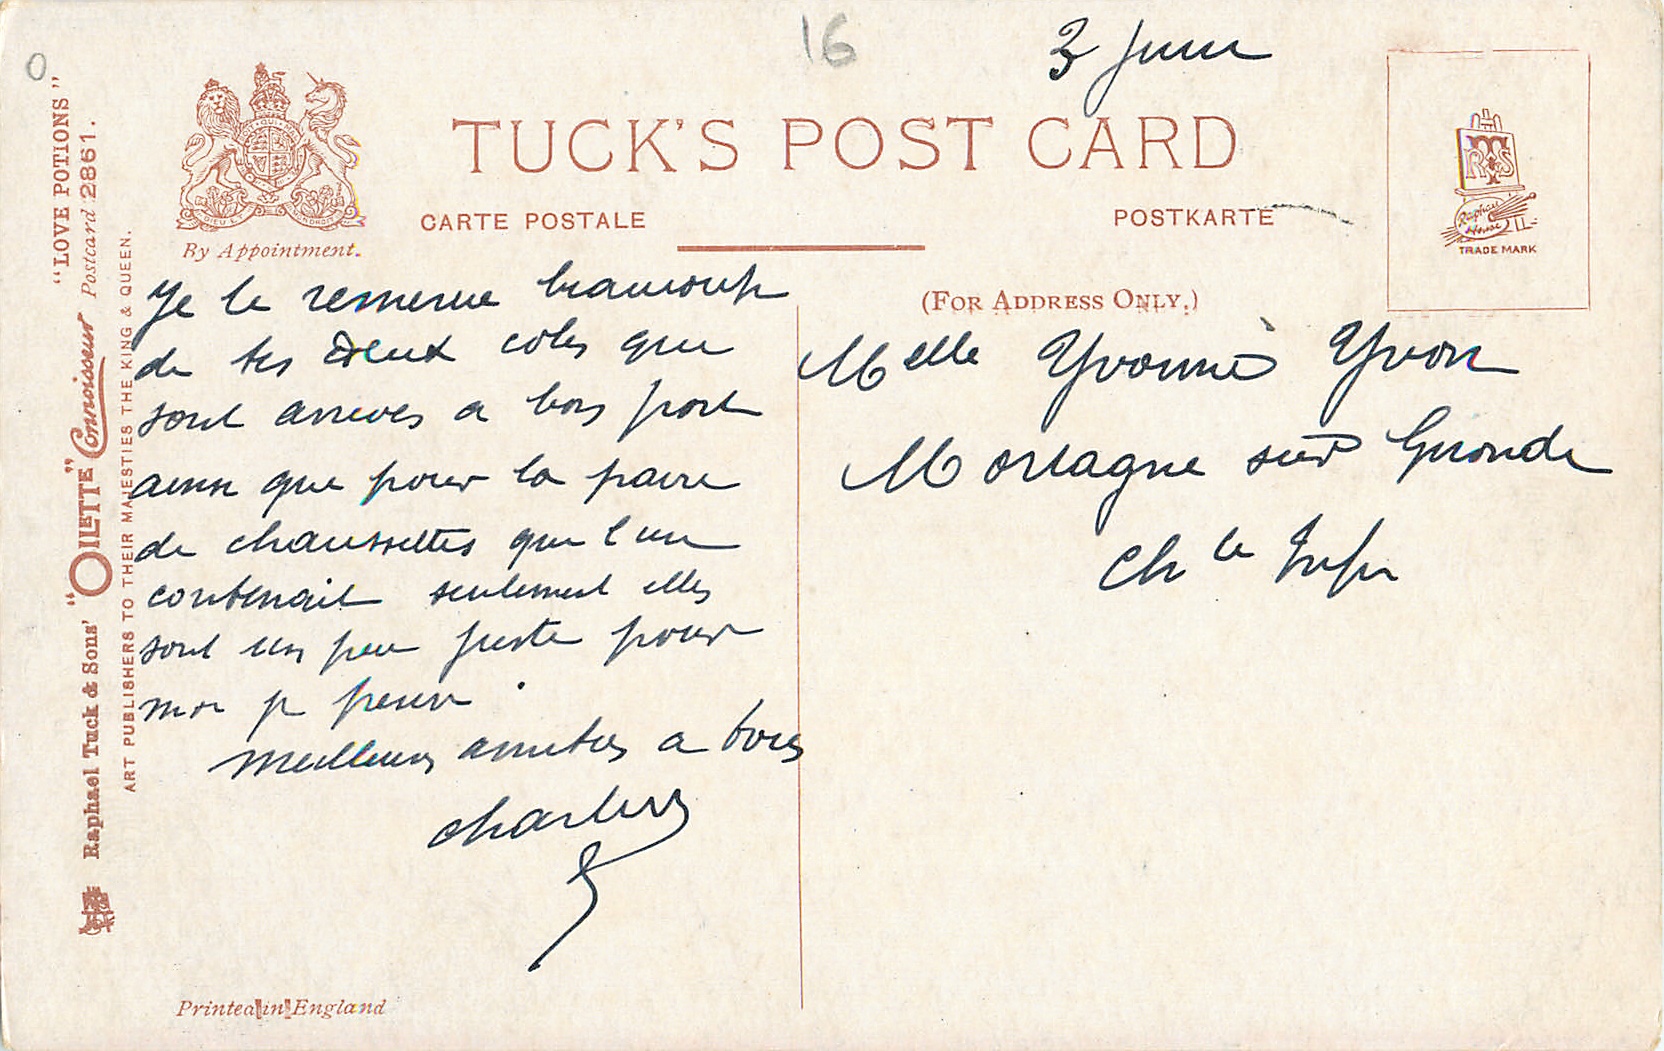 0
16
3 Juin
"LOVE POTIONS"
Postcard 2861.
Raphael Tuck & Sons' "OILETTE" Connoisseur
ART PUBLISHERS TO THEIR MAJESTIES THE KING & QUEEN.
By Appointment.
TUCK'S POST CARD
CARTE POSTALE
POSTKARTE
Raphael House
TRADE MARK
(FOR ADDRESS ONLY.)
Je te remercie beaucoup
de tes deux colis qui
sont arrivés a bon port
ainsi que pour la paire
de chaussettes que l'un
contenait seulement elles
sont un peu juste pour
moi
Meilleures amitiés a tous
Charles
Melle Yvonne Yvon
Mortagne sur Gironde
Ch te Infre
Printed in England